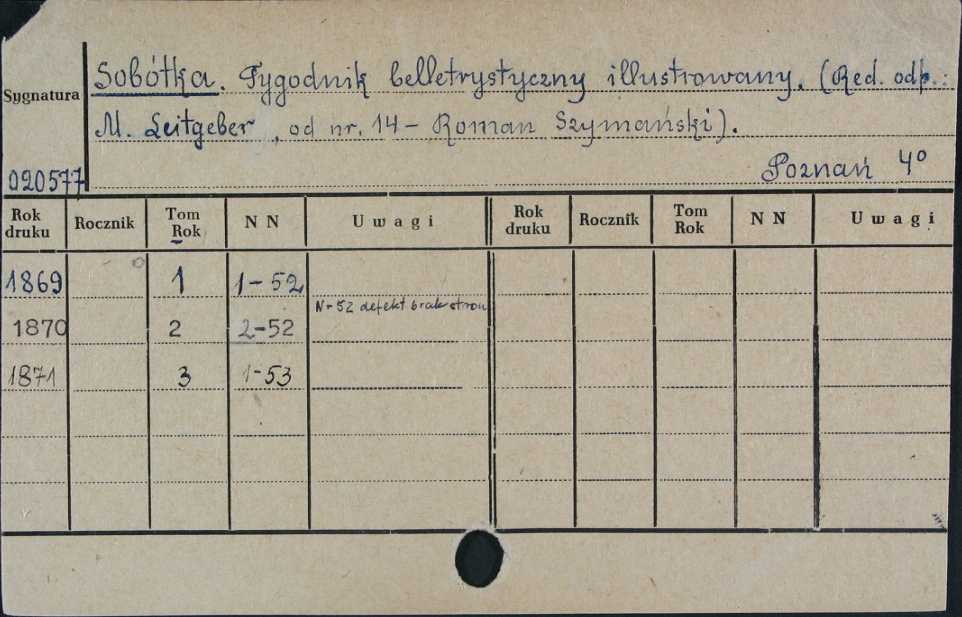 Sobótka. Tygodnik belletrystyczny illustrowany. (Red. odp.:
Sygnatura
M. Leitgeber, od nr. 14 - Roman Szymański).
020577
Poznań 4°
Rok druku Rocznik Tom Rok N N Uwagi Rok druku Rocznik Tom Rok N N Uwagi
1869 1 1-52
N-52 defekt brak stron
1870 2 2-52
1871 3 1-53